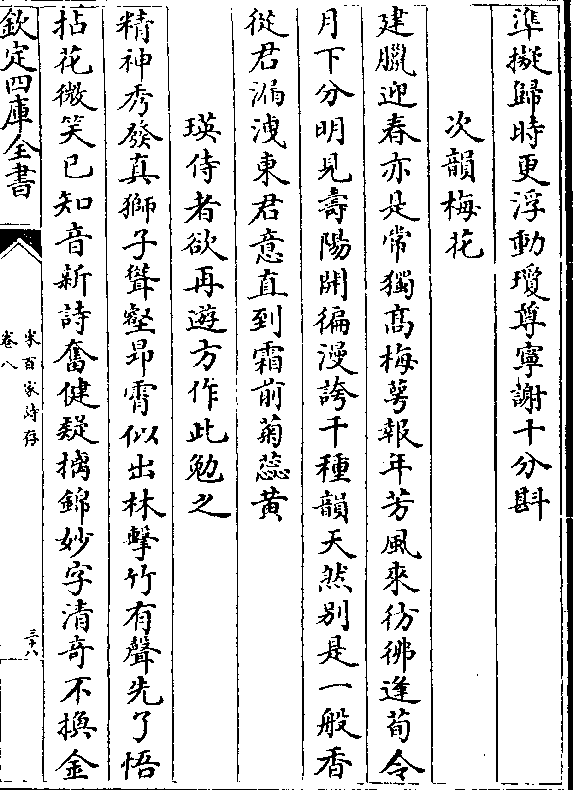 準擬歸時更浮動瓊尊寧謝十分斟
次韻梅花
建臘迎春亦是常獨髙梅蕚報年芳風來彷彿逢荀令
月下分明見壽陽開徧漫誇千種韻天然别是一般香
從君漏洩東君意直到霜前菊蕊黄
瑛侍者欲再遊方作此勉之
精神秀發真獅子聳壑昻霄似出林擊竹有聲先了悟
拈花微笑已知音新詩奮健疑摛錦妙字清竒不換金
欽定四庫全書
宋百家詩存
卷八
三十八